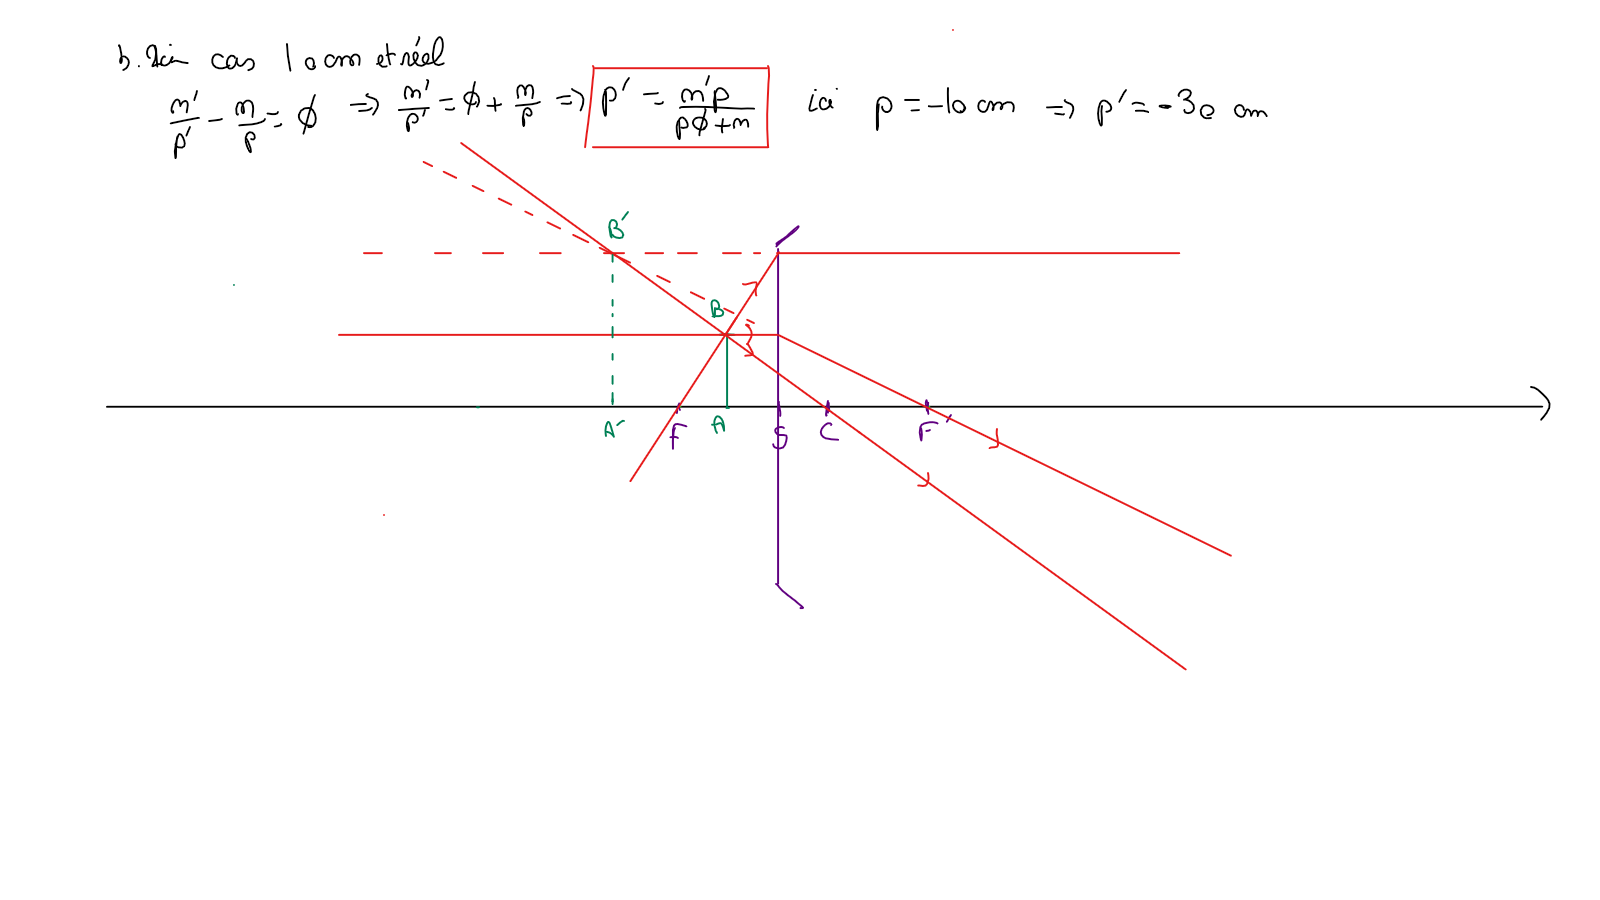 b. 1er cas 10 cm et réel
m'/p' - m/p = ϕ => m'/p' = ϕ + m/p => p' = m'p/(pϕ+m) ici p = -10 cm => p' = -30 cm
B'
B
A' F A S C F'